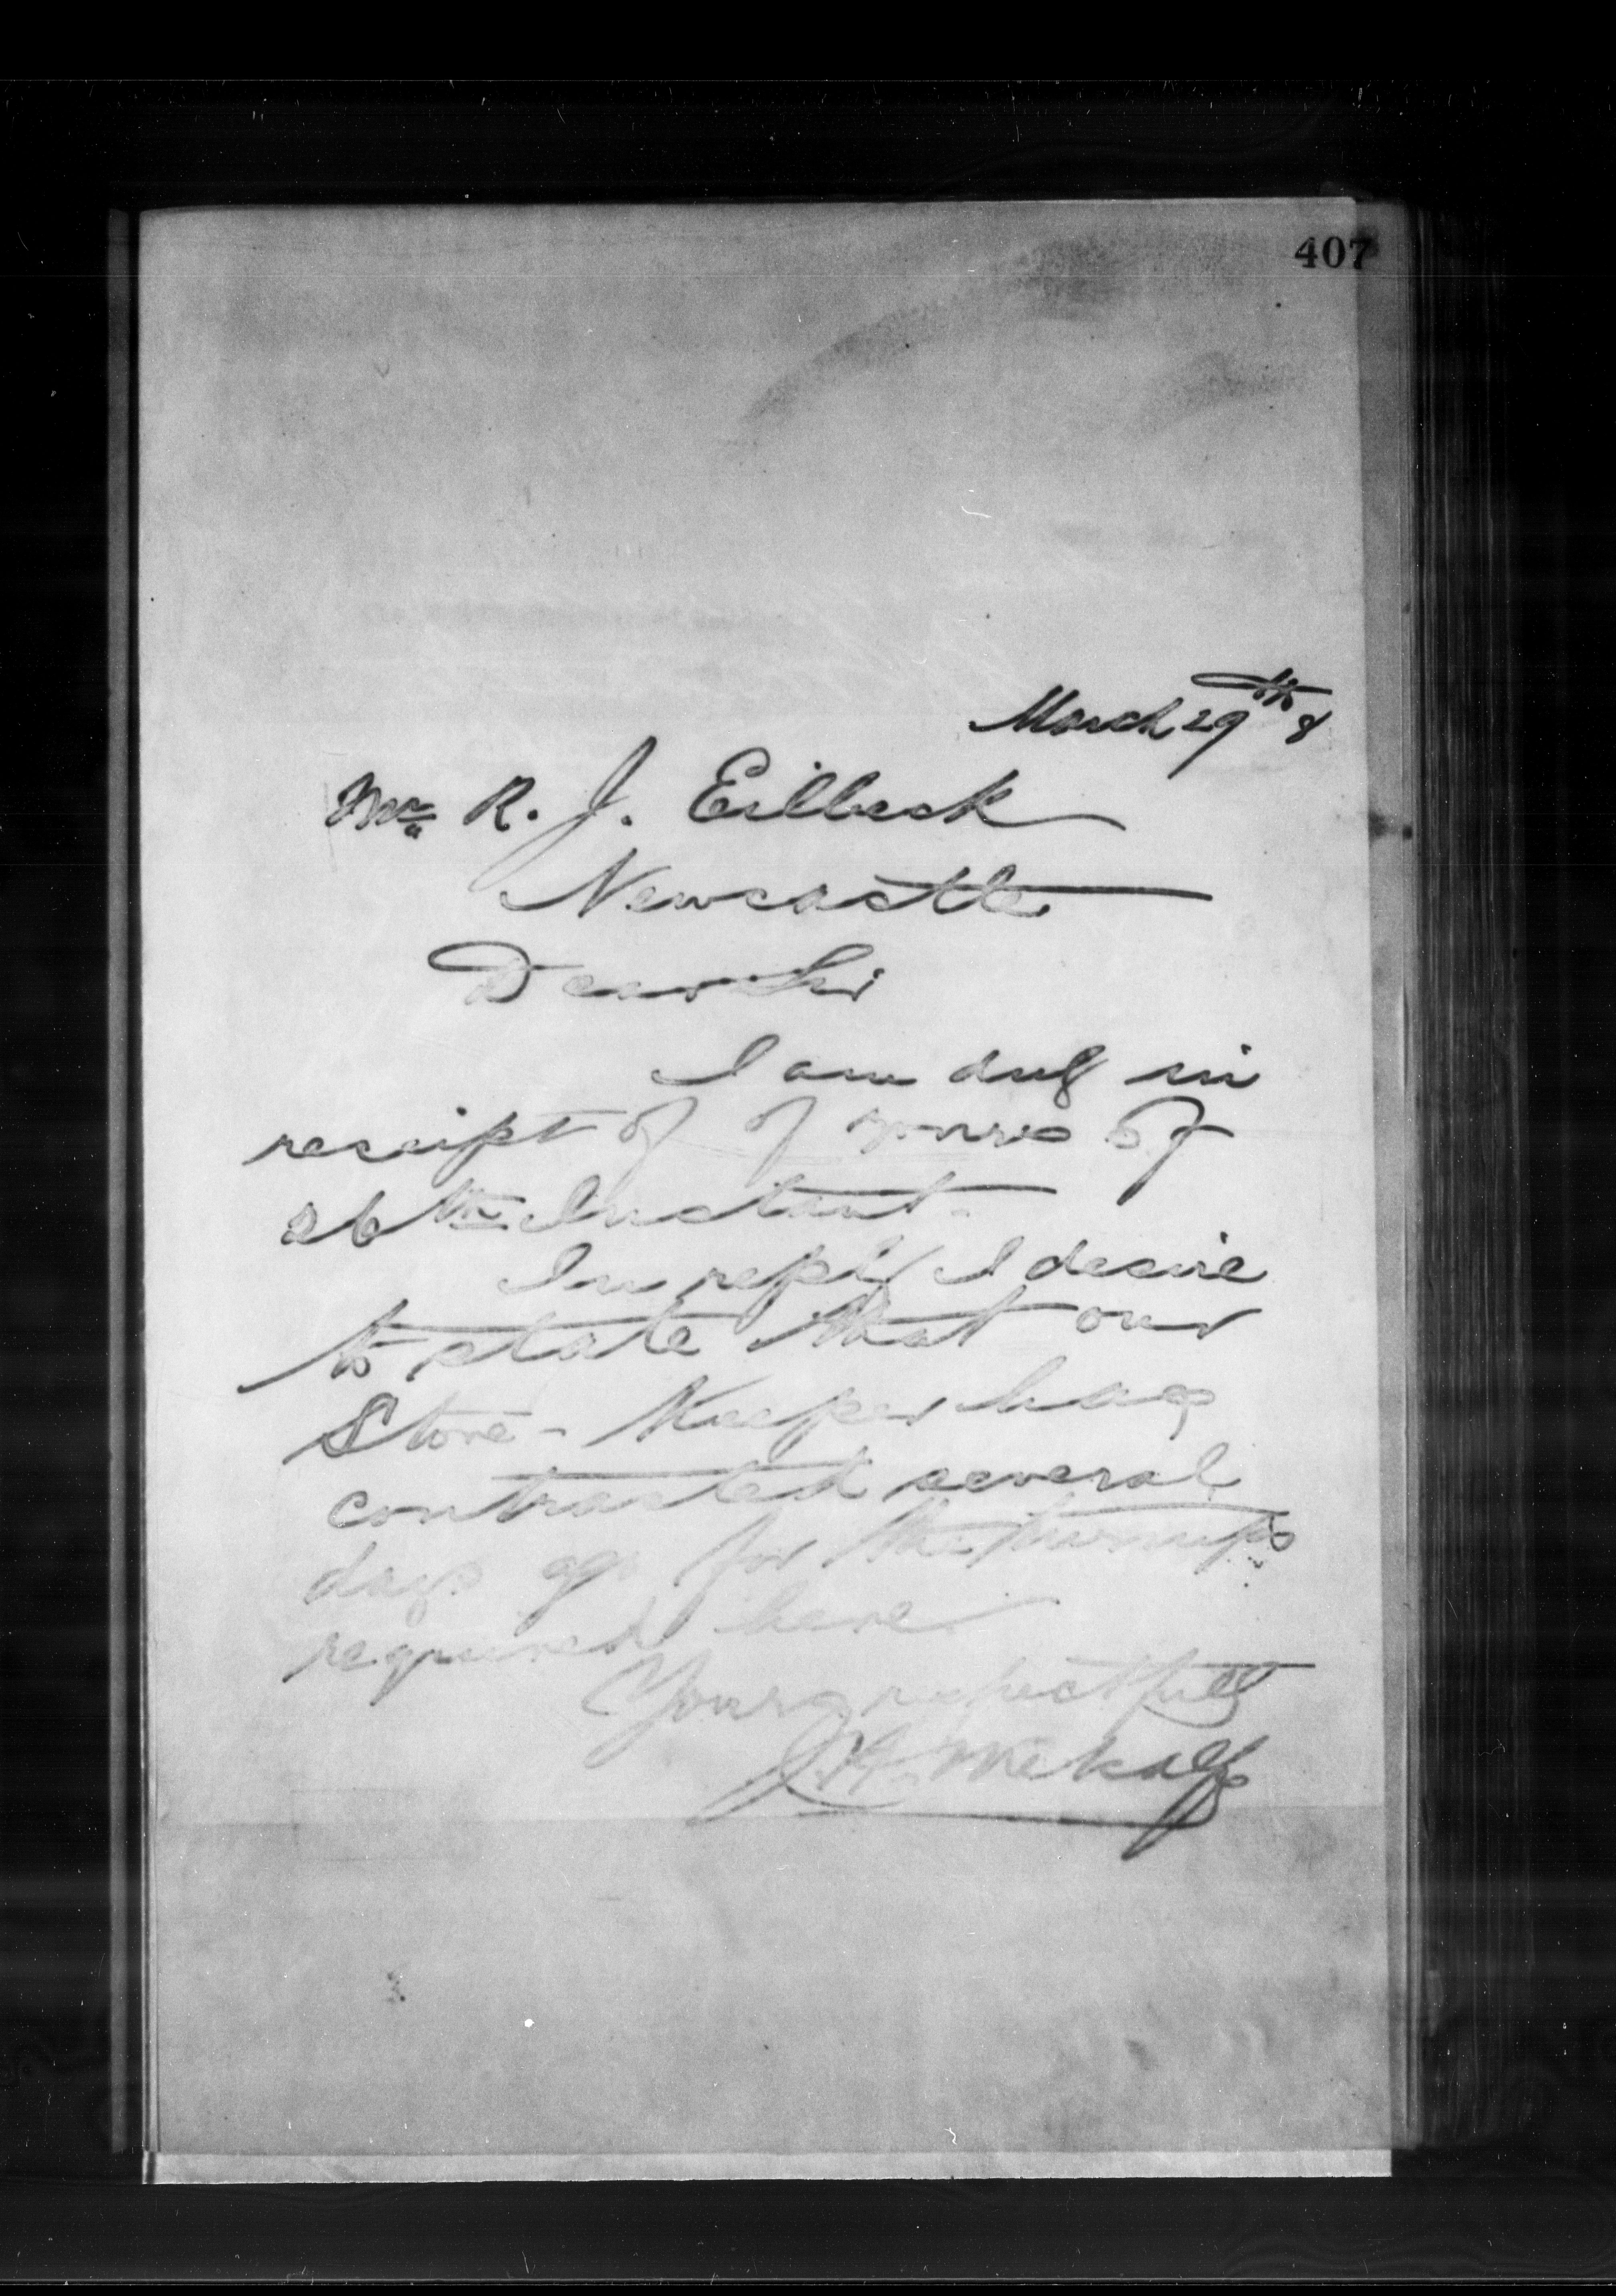 407
March 29th 8
Mr R. J. Eilbeck
Newcastle
Dear Sir
I am duly in
receipt of of yours of
26th Instant.
In reply I desire
to state that our
Store-Keeper has
contracted several
days ago for the turnips
required here
Yours respectfully
J. H. Metcalfe